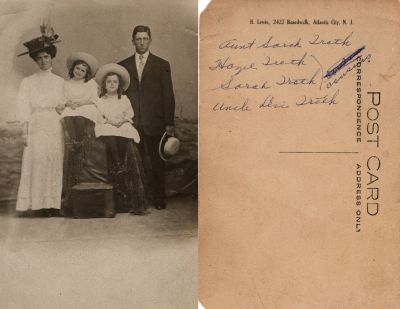 R. Lewis, 2423 Boardwalk, Atlantic City, N. J.
Aunt Sarah Troth
Hazel Troth
Sarah Troth
Uncle Troth
POST CARD
CORRESPONDENCE
ADDRESS ONLY